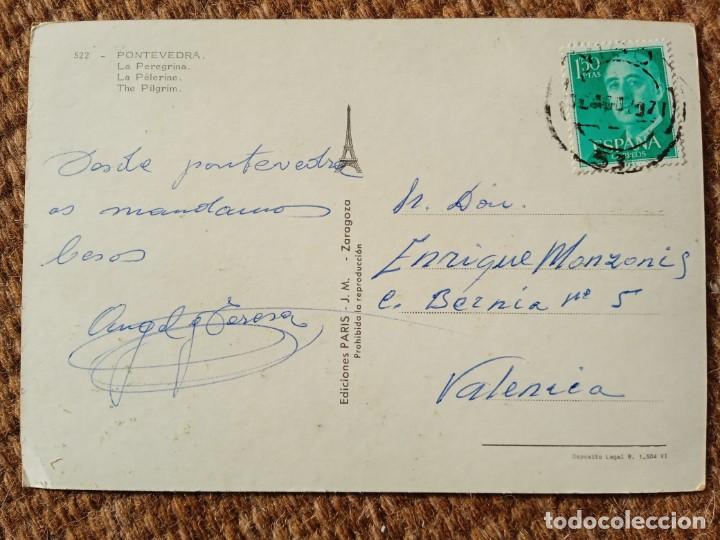 522 - PONTEVEDRA.
La Peregrina.
La Pélerine.
The Pilgrim.
Desde pontevedra
os mandamos
besos
Angel y Teresa
Ediciones PARIS - J. M. - Zaragoza
Prohibida la reproducción
1'50
PTAS
ESPAÑA
CORREOS
Sr. Don.
Enrique Monzonis
C. Bernia nº 5
Valenica
Deposito Legal B. 1.504 VI
todocoleccion
todocoleccion.net